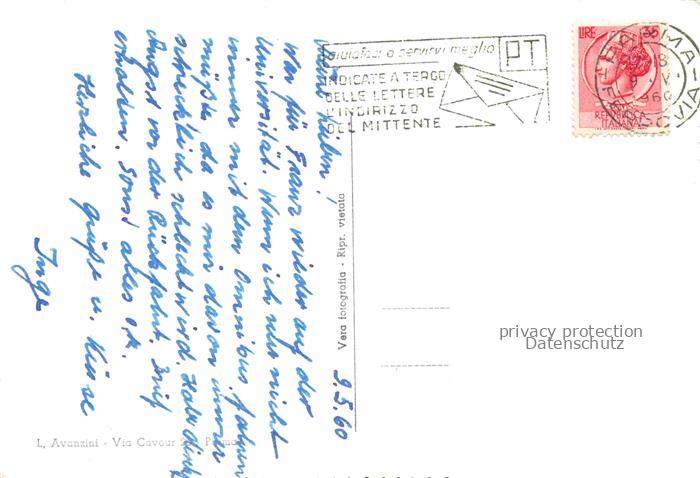 Aiutateci a servirvi meglio
PT
INDICATE A TERGO
DELLE LETTERE
L'INDIRIZZO
DEL MITTENTE
LIRE
REPVBBLICA
ITALIANA
PARMA
FERROVIA
9.5.60
Lieben!
War für Franz wieder auf der
Universität. Wenn ich nur nicht
immer mit dem Omnibus fahren
müßte, da es mir davon immer
schrecklich schlecht wird. Habe direkt
Angst vor der Rückfahrt. Brief
erhalten, sonst alles o.k.
Herzliche Grüße u. Küsse
Inge
Vera fotografia - Ripr. vietata
L. Avanzini - Via Cavour Parma
privacy protection
Datenschutz